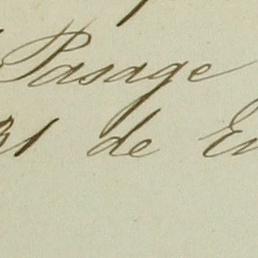 Pasage
31 de